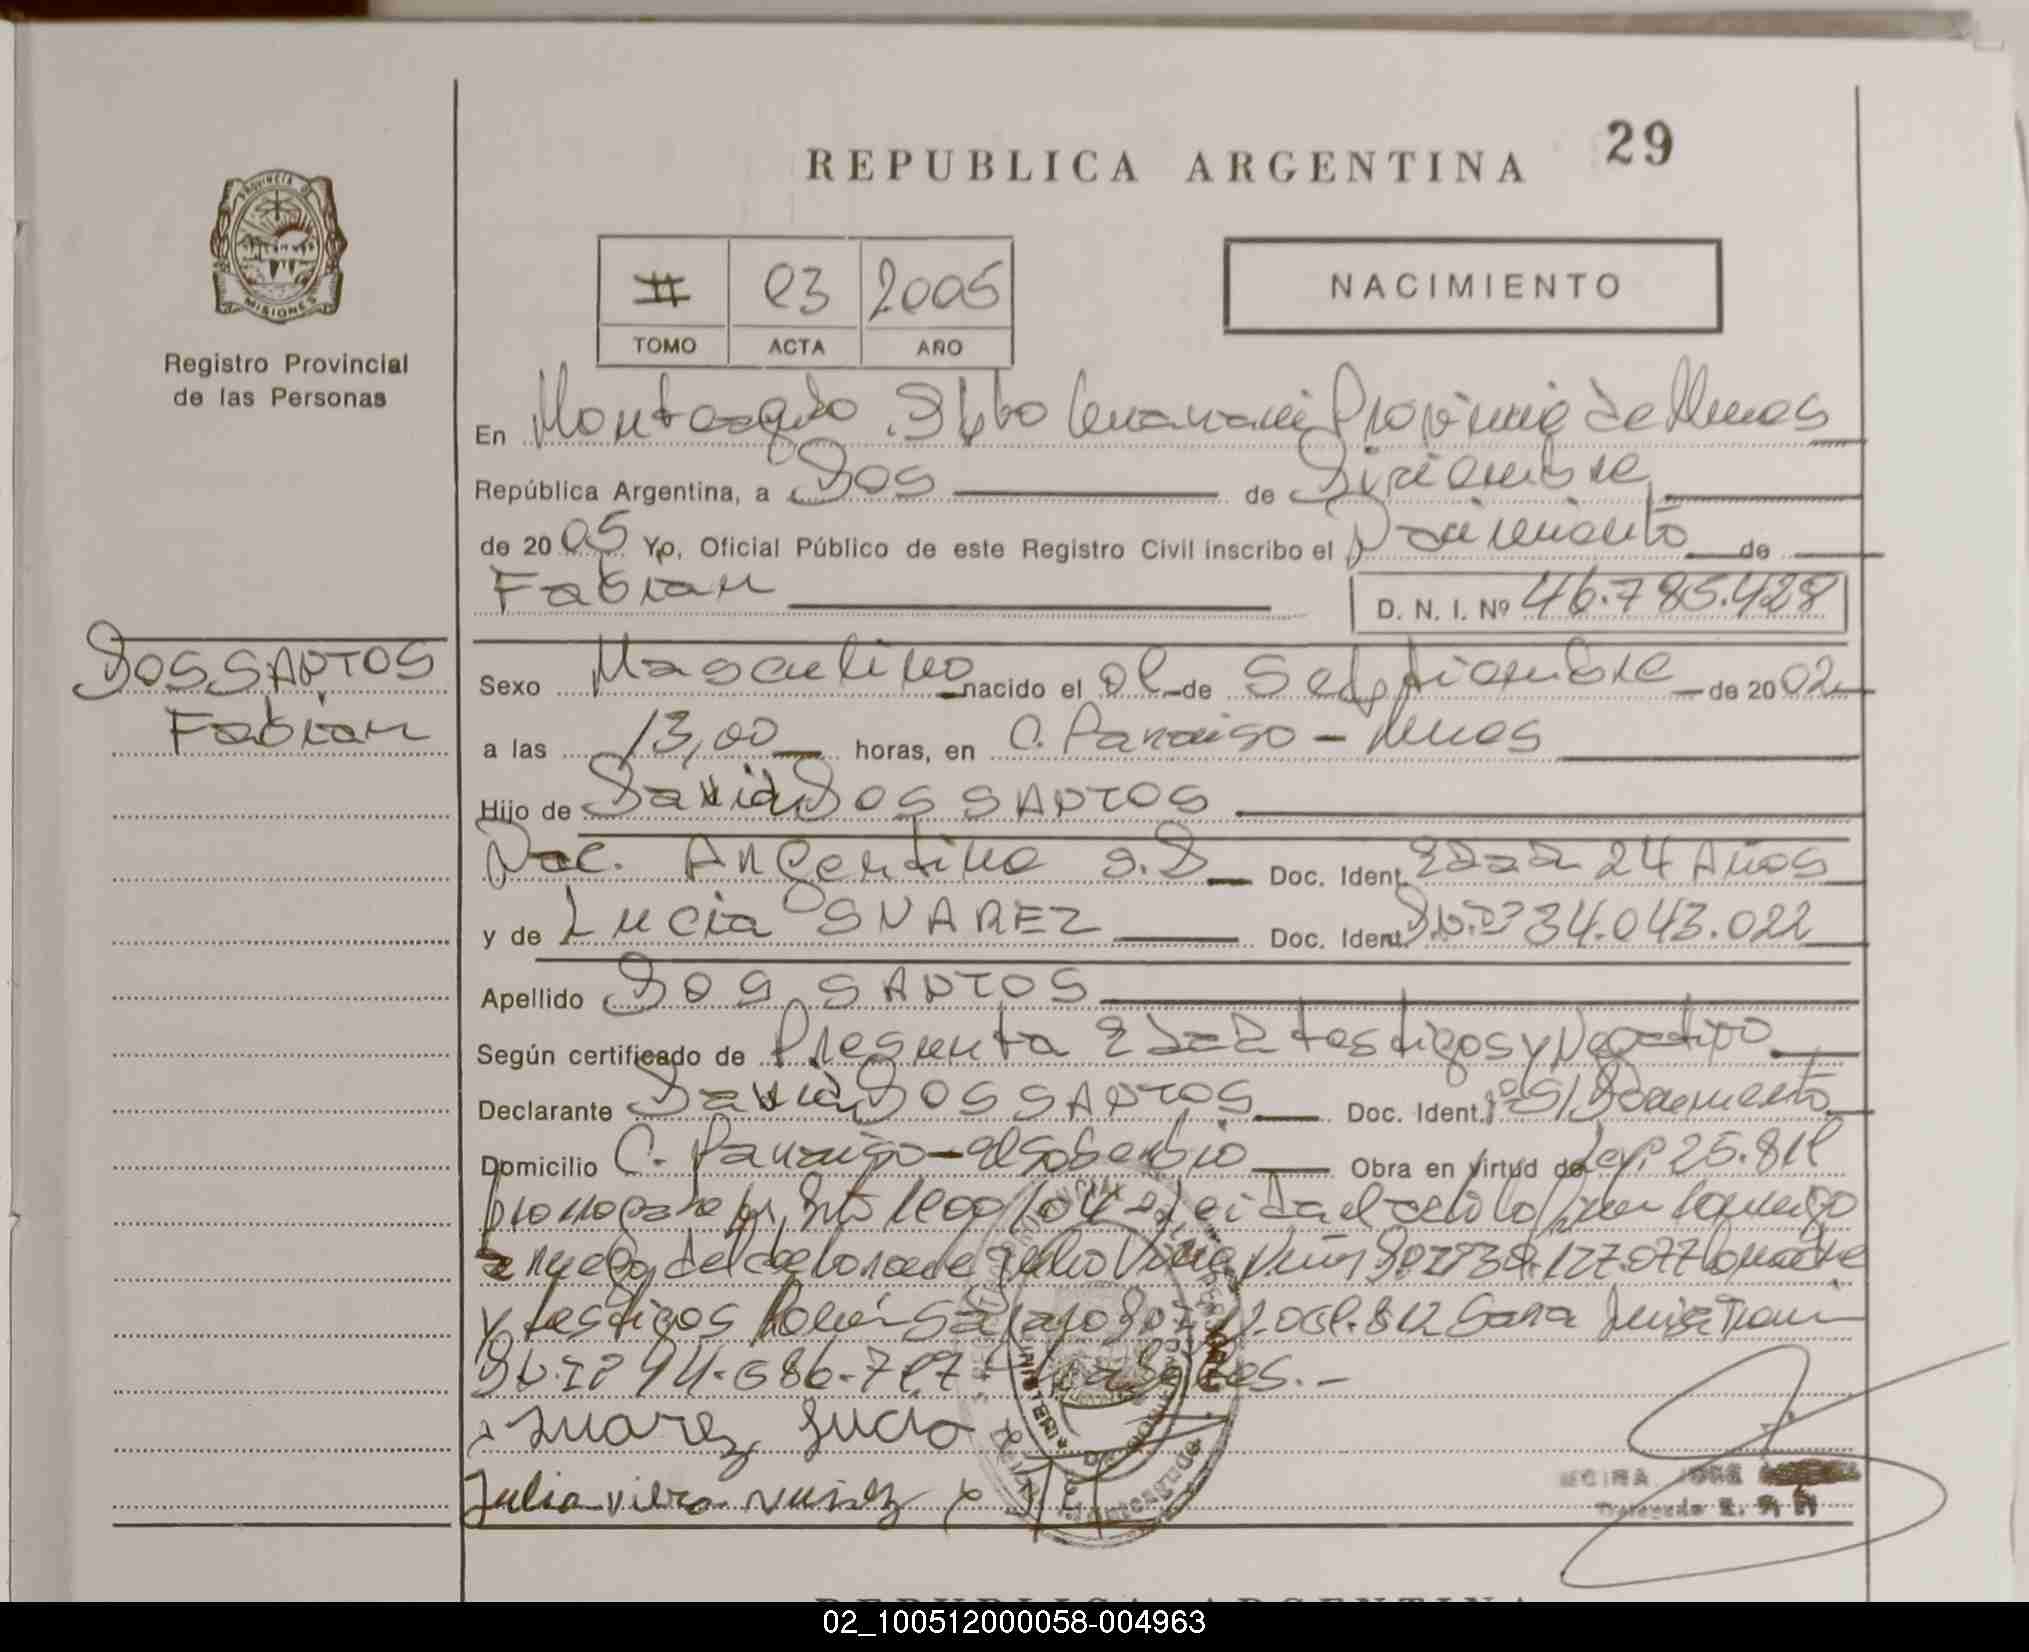 REPUBLICA ARGENTINA 29
PROVINCIA DE
MISIONES
Registro Provincial
de las Personas
NACIMIENTO
# 03 2005
TOMO ACTA AÑO
En Monteagudo. Dpto Guaraní Provincia de Mnes
República Argentina, a Dos de Diciembre
de 2005 Yo, Oficial Público de este Registro Civil inscribo el Nacimiento de
Fabian D. N. I. Nº 46.785.428
DOS SANTOS
Fabian
Sexo Masculino nacido el 01 de Septiembre de 2002
a las 13,00 horas, en C. Paraiso - Mnes
Hijo de David DOS SANTOS
Nac. Argentino S.D Doc. Ident. Edad 24 Años
y de Lucia SUAREZ Doc. Ident. DNIº 34.043.022
Apellido DOS SANTOS
Según certificado de Presenta Edad testigos y Negativo
Declarante David DOS SANTOS Doc. Ident. S/Documento
Domicilio C. Paraiso - El Soberbio Obra en virtud de Ley: 25.819
Leida el acta la firman conmigo
a ruego del declarante Julio la madre
y testigos
Suarez Lucia
Julio viera nuñez x
JOSE
Delegado R. P. P.
REPUBLICA ARGENTINA
02_100512000058-004963